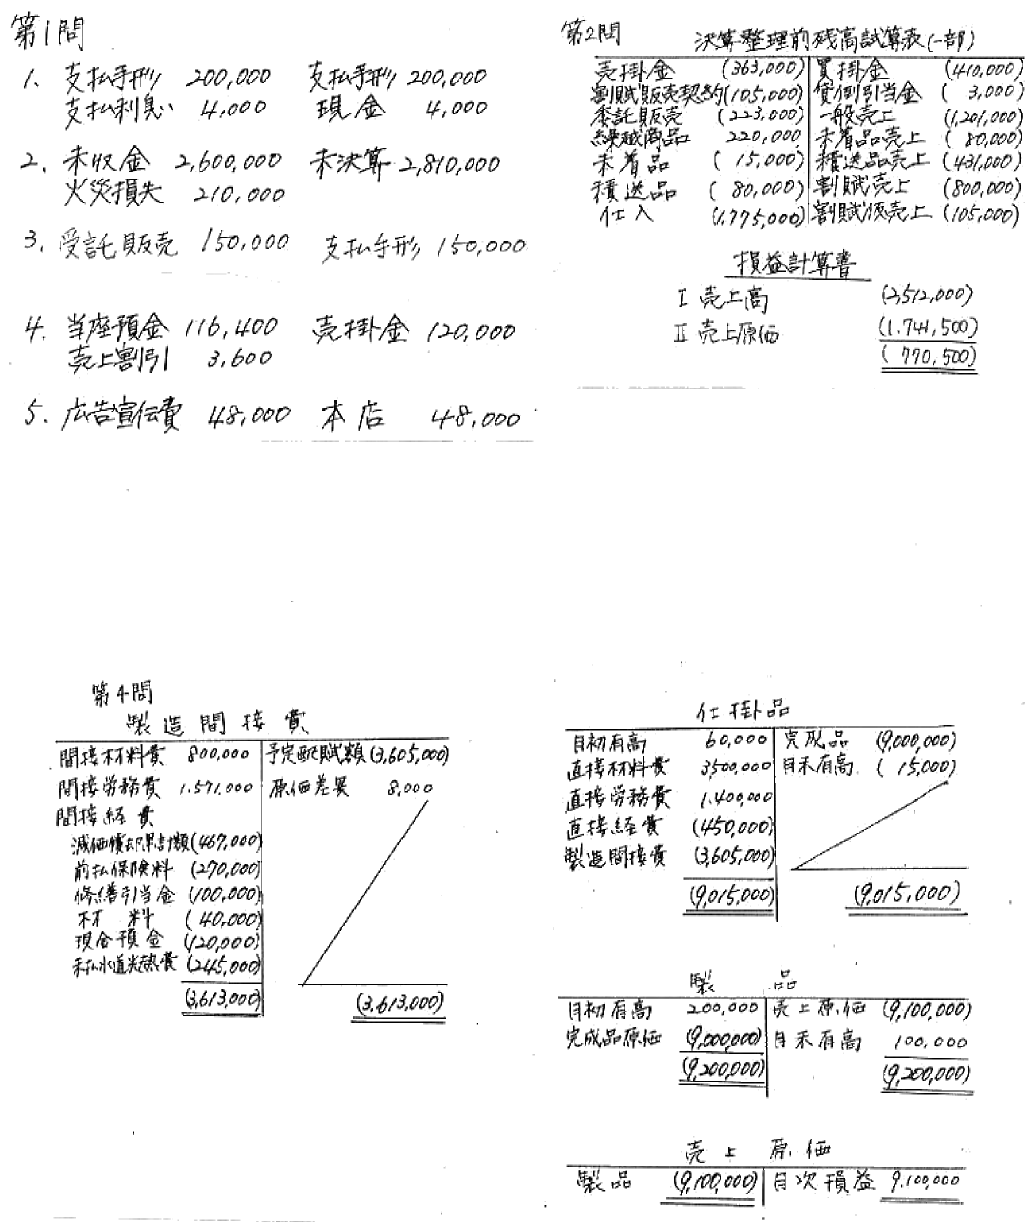 第1問
1. 支払手形 200,000 支払手形 200,000
支払利息 4,000 現金 4,000
2. 未収金 2,600,000 未決算 2,810,000
火災損失 210,000
3. 受託販売 150,000 支払手形 150,000
4. 当座預金 116,400 売掛金 120,000
売上割引 3,600
5. 広告宣伝費 48,000 本店 48,000
第2問
決算整理前残高試算表(一部)
売掛金 (363,000) 買掛金 (410,000)
割賦販売契約 (105,000) 貸倒引当金 ( 3,000)
委託販売 (223,000) 一般売上 (1,201,000)
繰越商品 220,000 未着品売上 ( 80,000)
未着品 ( 15,000) 積送品売上 (431,000)
積送品 ( 80,000) 割賦売上 (800,000)
仕入 (1,775,000) 割賦仮売上 (105,000)
損益計算書
I 売上高 (2,512,000)
II 売上原価 (1,741,500)
( 770,500)
第4問
製造間接費
間接材料費 800,000 予定配賦額 (3,605,000)
間接労務費 1,571,000 原価差異 8,000
間接経費
減価償却累計額 (467,000)
前払保険料 (270,000)
修繕引当金 (100,000)
材料 ( 40,000)
現金預金 (120,000)
未払水道光熱費 (245,000)
(3,613,000) (3,613,000)
仕掛品
月初有高 60,000 完成品 (9,000,000)
直接材料費 3,500,000 月末有高 ( 15,000)
直接労務費 1,400,000
直接経費 (450,000)
製造間接費 (3,605,000)
(9,015,000) (9,015,000)
製品
月初有高 200,000 売上原価 (9,100,000)
完成品原価 (9,000,000) 月末有高 100,000
(9,200,000) (9,200,000)
売上原価
製品 (9,100,000) 月次損益 9,100,000